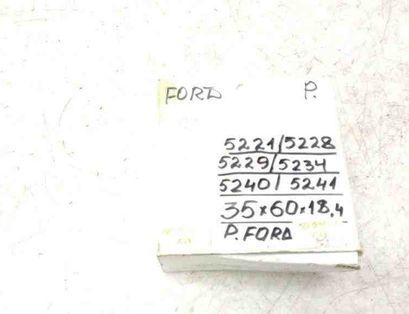 FORD P.
5221/5228
5229/5234
5240/5241
35x60x18,4
P. FORD